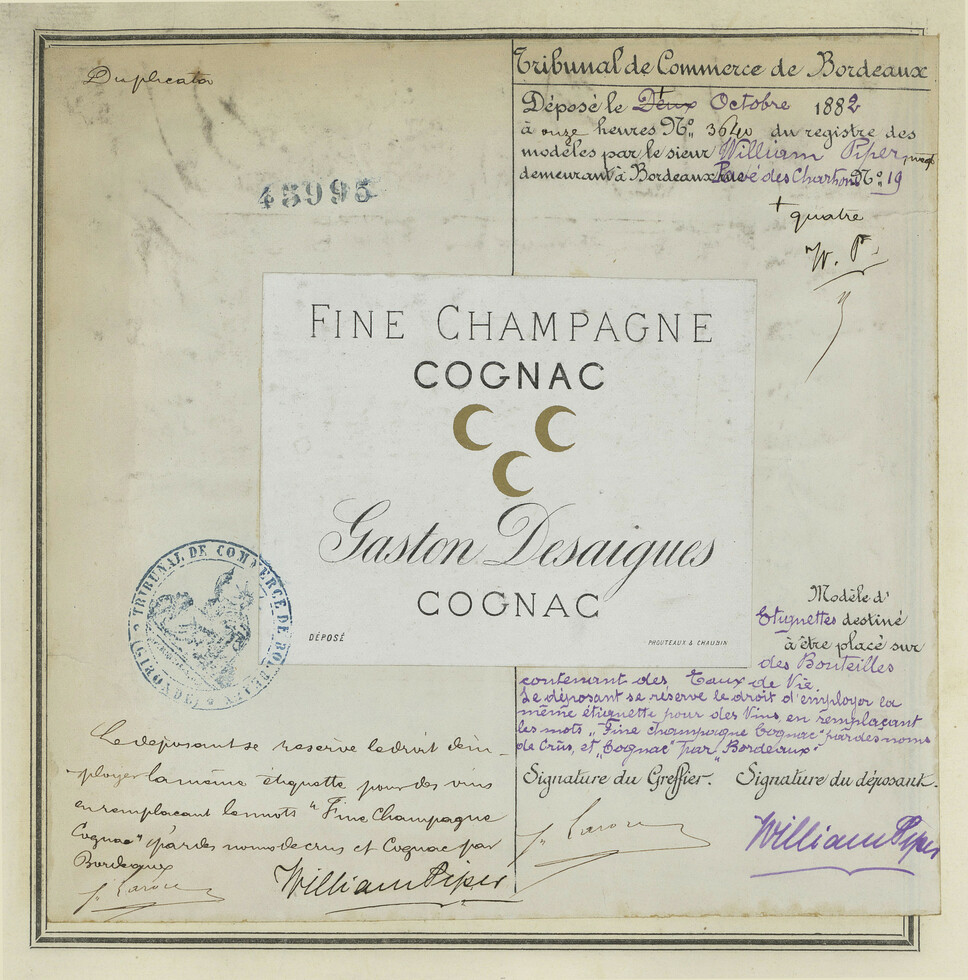 Duplicata
45995
Tribunal de Commerce de Bordeaux
Déposé le Deux + Octobre 1882
à onze heures No. 3640 du registre des
modèles par le sieur William Piper, negt
demeurant à Bordeaux Pavé des Chartrons No. 19
+ quatre
W. P.
FINE CHAMPAGNE
COGNAC
Gaston Desaigues
COGNAC
DÉPOSÉ
PROUTEAUX & CHAUDIN
TRIBUNAL DE COMMERCE DE BORDEAUX
(GIRONDE)
Modèle d'
Etiquettes destiné
à être placé sur
des Bouteilles
contenant des Eaux de Vie.
Le déposant se réserve le droit d'employer la
même étiquette pour des Vins, en remplaçant
les mots „Fine champagne Cognac" par des noms
de Crûs, et „Cognac" par „Bordeaux"
Signature du Greffier. Signature du déposant.
William Piper
Le deposant se reserve le droit d'em-
ployer la même étiquette pour des vins
en remplacant les mots "Fine Champagne
Cognac" par des noms de crus et Cognac par
Bordeaux
William Piper